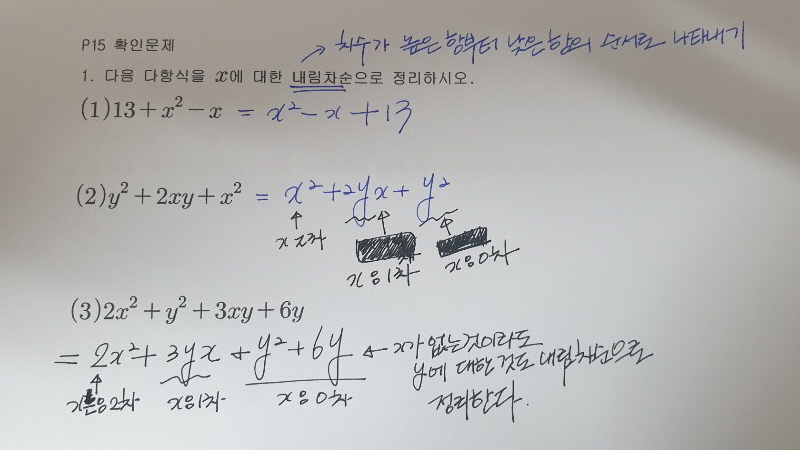 P15 확인문제
→ 차수가 높은 항부터 낮은 항의 순서로 나타내기
1. 다음 다항식을 x에 대한 내림차순으로 정리하시오.
(1)13+x²−x = x²−x+13
(2)y²+2xy+x² = x²+2yx+y²
x 2차
x의 1차
x의 0차
(3)2x²+y²+3xy+6y
= 2x²+3yx+y²+6y ← x가 없는것이라도
y에 대한 것도 내림차순으로
정리한다.
x의 2차
x의 1차
x의 0차